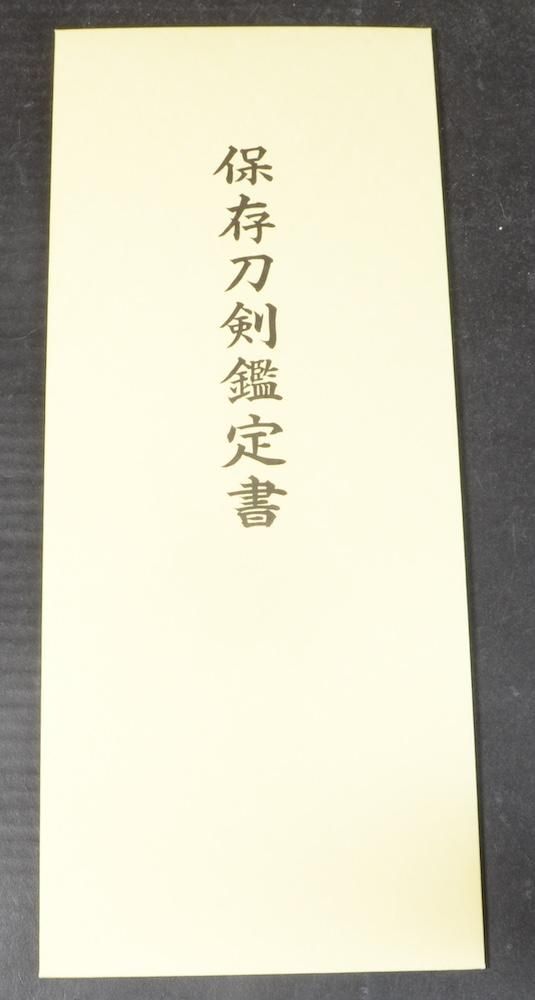 保存刀剣鑑定書